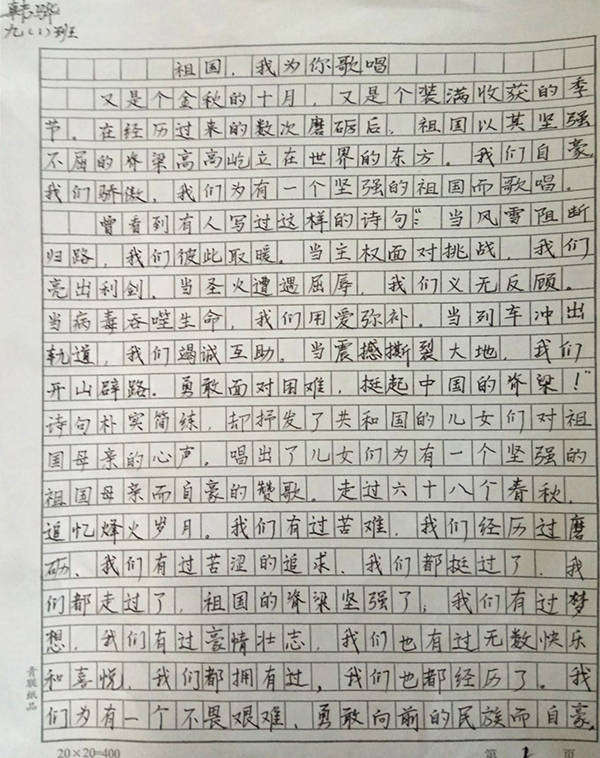 韩鄂
九（1）班
祖国，我为你歌唱
又是个金秋的十月，又是个装满收获的季
节。在经历过来的数次磨砺后，祖国以其坚强
不屈的脊梁高高屹立在世界的东方。我们自豪
我们骄傲，我们为有一个坚强的祖国而歌唱。
曾看到有人写过这样的诗句：“当风雪阻断
归路，我们彼此取暖。当主权面对挑战，我们
亮出利剑。当圣火遭遇屈辱，我们义无反顾。
当病毒吞噬生命，我们用爱弥补。当列车冲出
轨道，我们竭诚互助。当震撼撕裂大地，我们
开山辟路。勇敢面对困难，挺起中国的脊梁！”
诗句朴实简练，却抒发了共和国的儿女们对祖
国母亲的心声。唱出了儿女们为有一个坚强的
祖国母亲而自豪的赞歌。走过六十八个春秋，
追忆烽火岁月。我们有过苦难，我们经历过磨
砺，我们有过苦涩的追求，我们都挺过了，我
们都走过了，祖国的脊梁坚强了；我们有过梦
想，我们有过豪情壮志，我们也有过无数快乐
和喜悦，我们都拥有过，我们也都经历了。我
们为有一个不畏艰难，勇敢向前的民族而自豪，
青联纸品
20×20=400
第 1 页